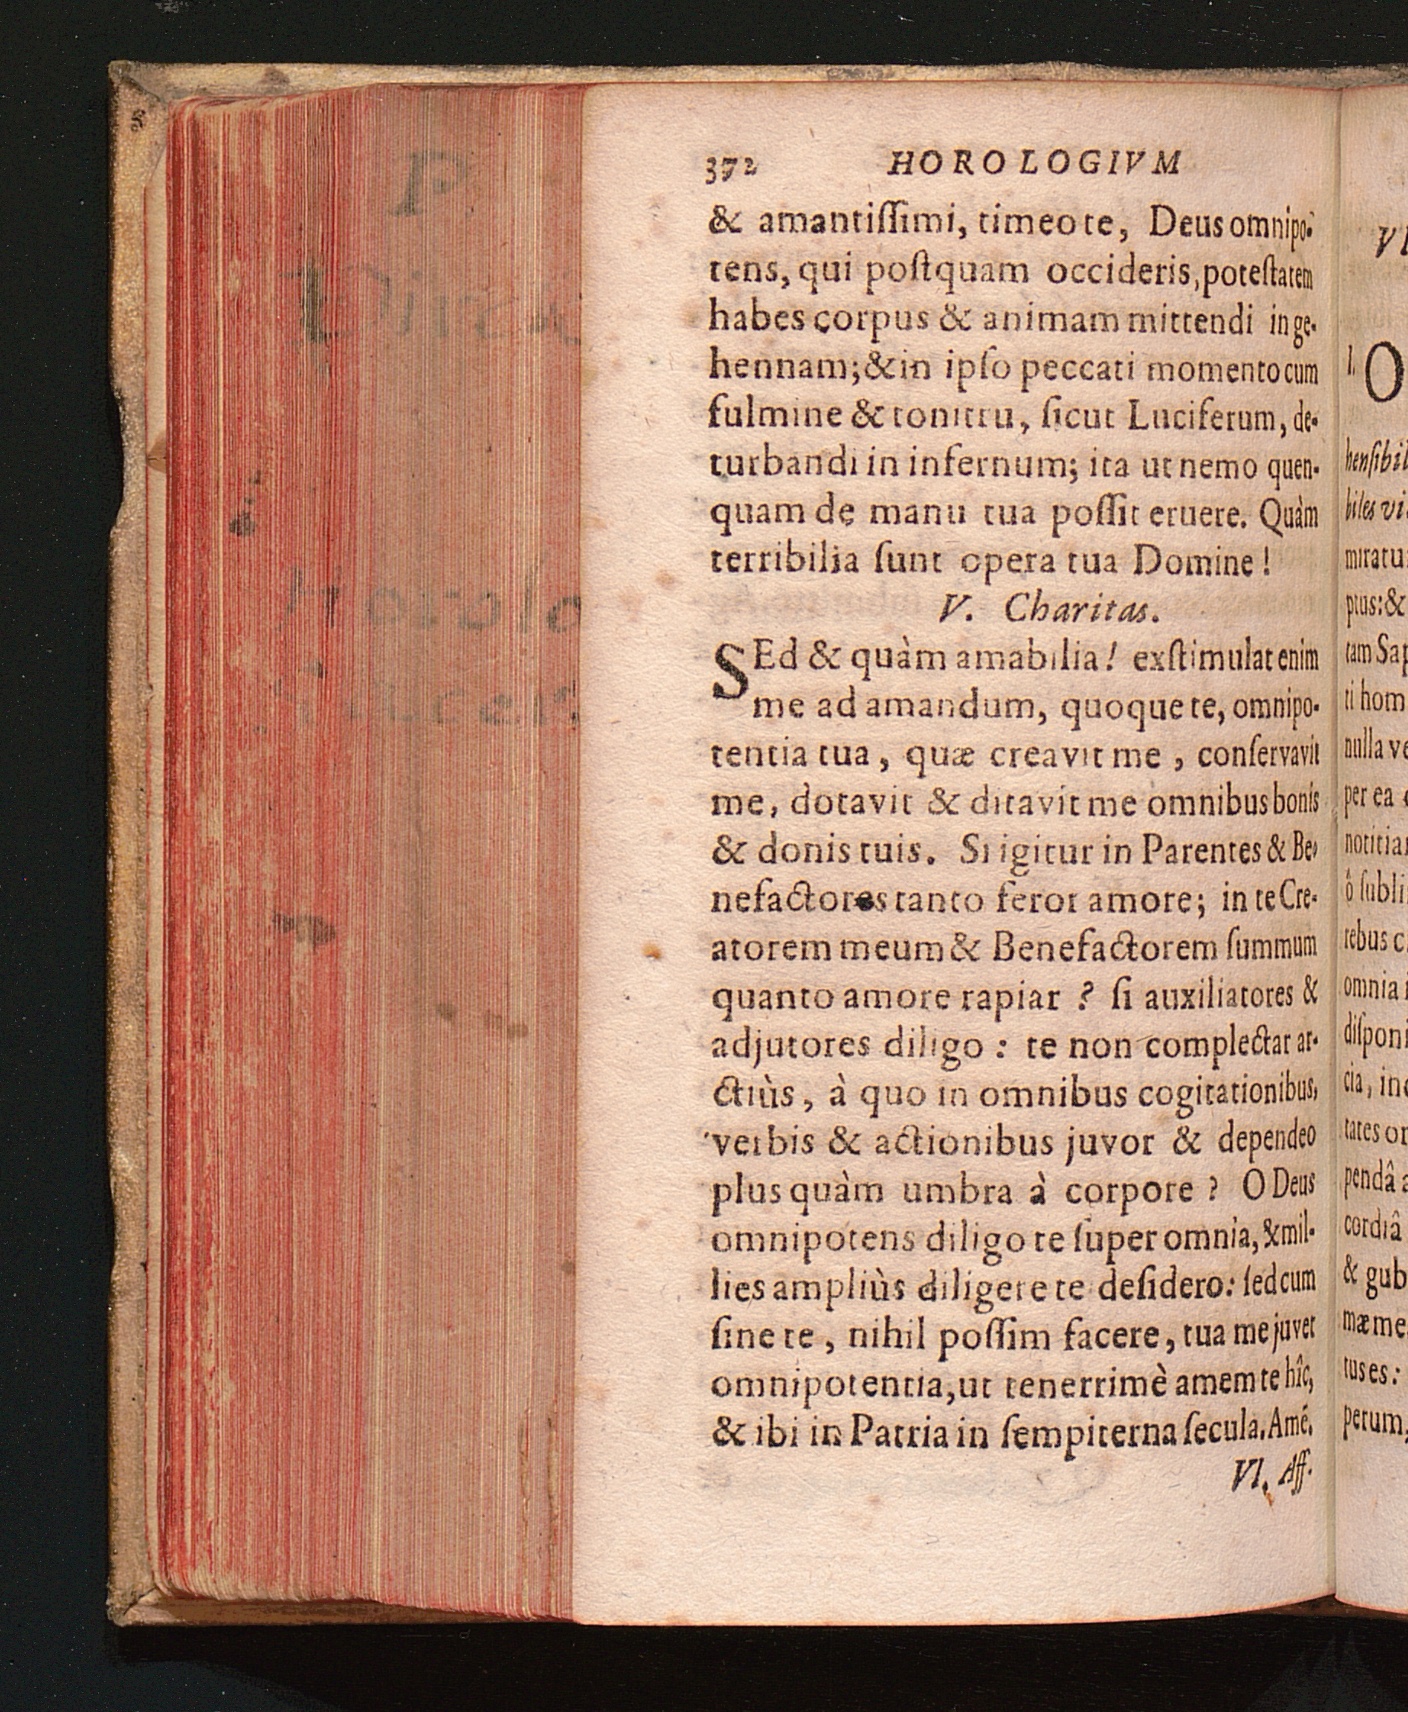 372 HOROLOGIVM
& amantiſſimi, timeo te, Deus omnipo-
tens, qui poſtquam occideris, poteſtatem
habes corpus & animam mittendi in ge-
hennam; & in ipſo peccati momento cum
fulmine & tonitru, ſicut Luciferum, de-
turbandi in infernum; ita ut nemo quen-
quam de manu tua poſſit eruere. Quàm
terribilia ſunt opera tua Domine!
V. Charitas.
SEd & quàm amabilia! exſtimulat enim
me ad amandum, quoque te, omnipo-
tentia tua, quæ creavit me, conſervavit
me, dotavit & ditavit me omnibus bonis
& donis tuis. Si igitur in Parentes & Be-
nefactores tanto feror amore; in te Cre-
atorem meum & Benefactorem ſummum
quanto amore rapiar? ſi auxiliatores &
adjutores diligo: te non complectar ar-
ctiùs, à quo in omnibus cogitationibus,
verbis & actionibus juvor & dependeo
plus quàm umbra à corpore? O Deus
omnipotens diligo te ſuper omnia, & mil-
lies ampliùs diligere te deſidero: ſed cum
ſine te, nihil poſſim facere, tua me juvet
omnipotentia, ut tenerrimè amem te hîc,
& ibi in Patria in ſempiterna ſecula. Amẽ.
VI. Aff.
VI
1. O
henſibil
biles vi
miratu
pius: &
tam Sap
ti hom
nulla ve
per ea
notitia
ô ſubli
rebus c
omnia i
diſponi
cia, in
tates or
pendâ a
cordiâ
& gub
mæ me
tus es:
perum,